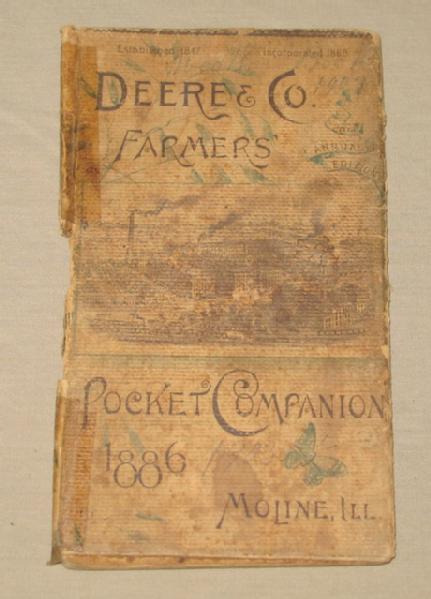 Established 1847 Incorporated 1868
DEERE & CO.
FARMERS'
ANNUAL
EDITION
POCKET COMPANION
1886
MOLINE, ILL.